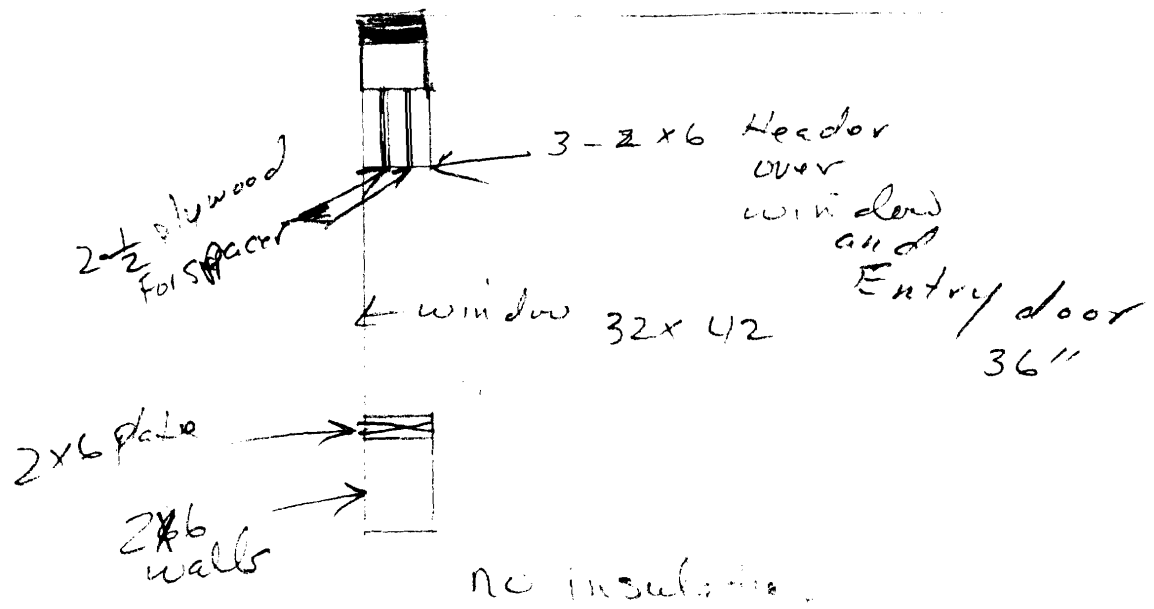 3-2x6 Header
over
window
and
Entry door
36"
2-1/2 plywood
For spacer
window 32x42
2x6 plate
2x6
walls
no insulation